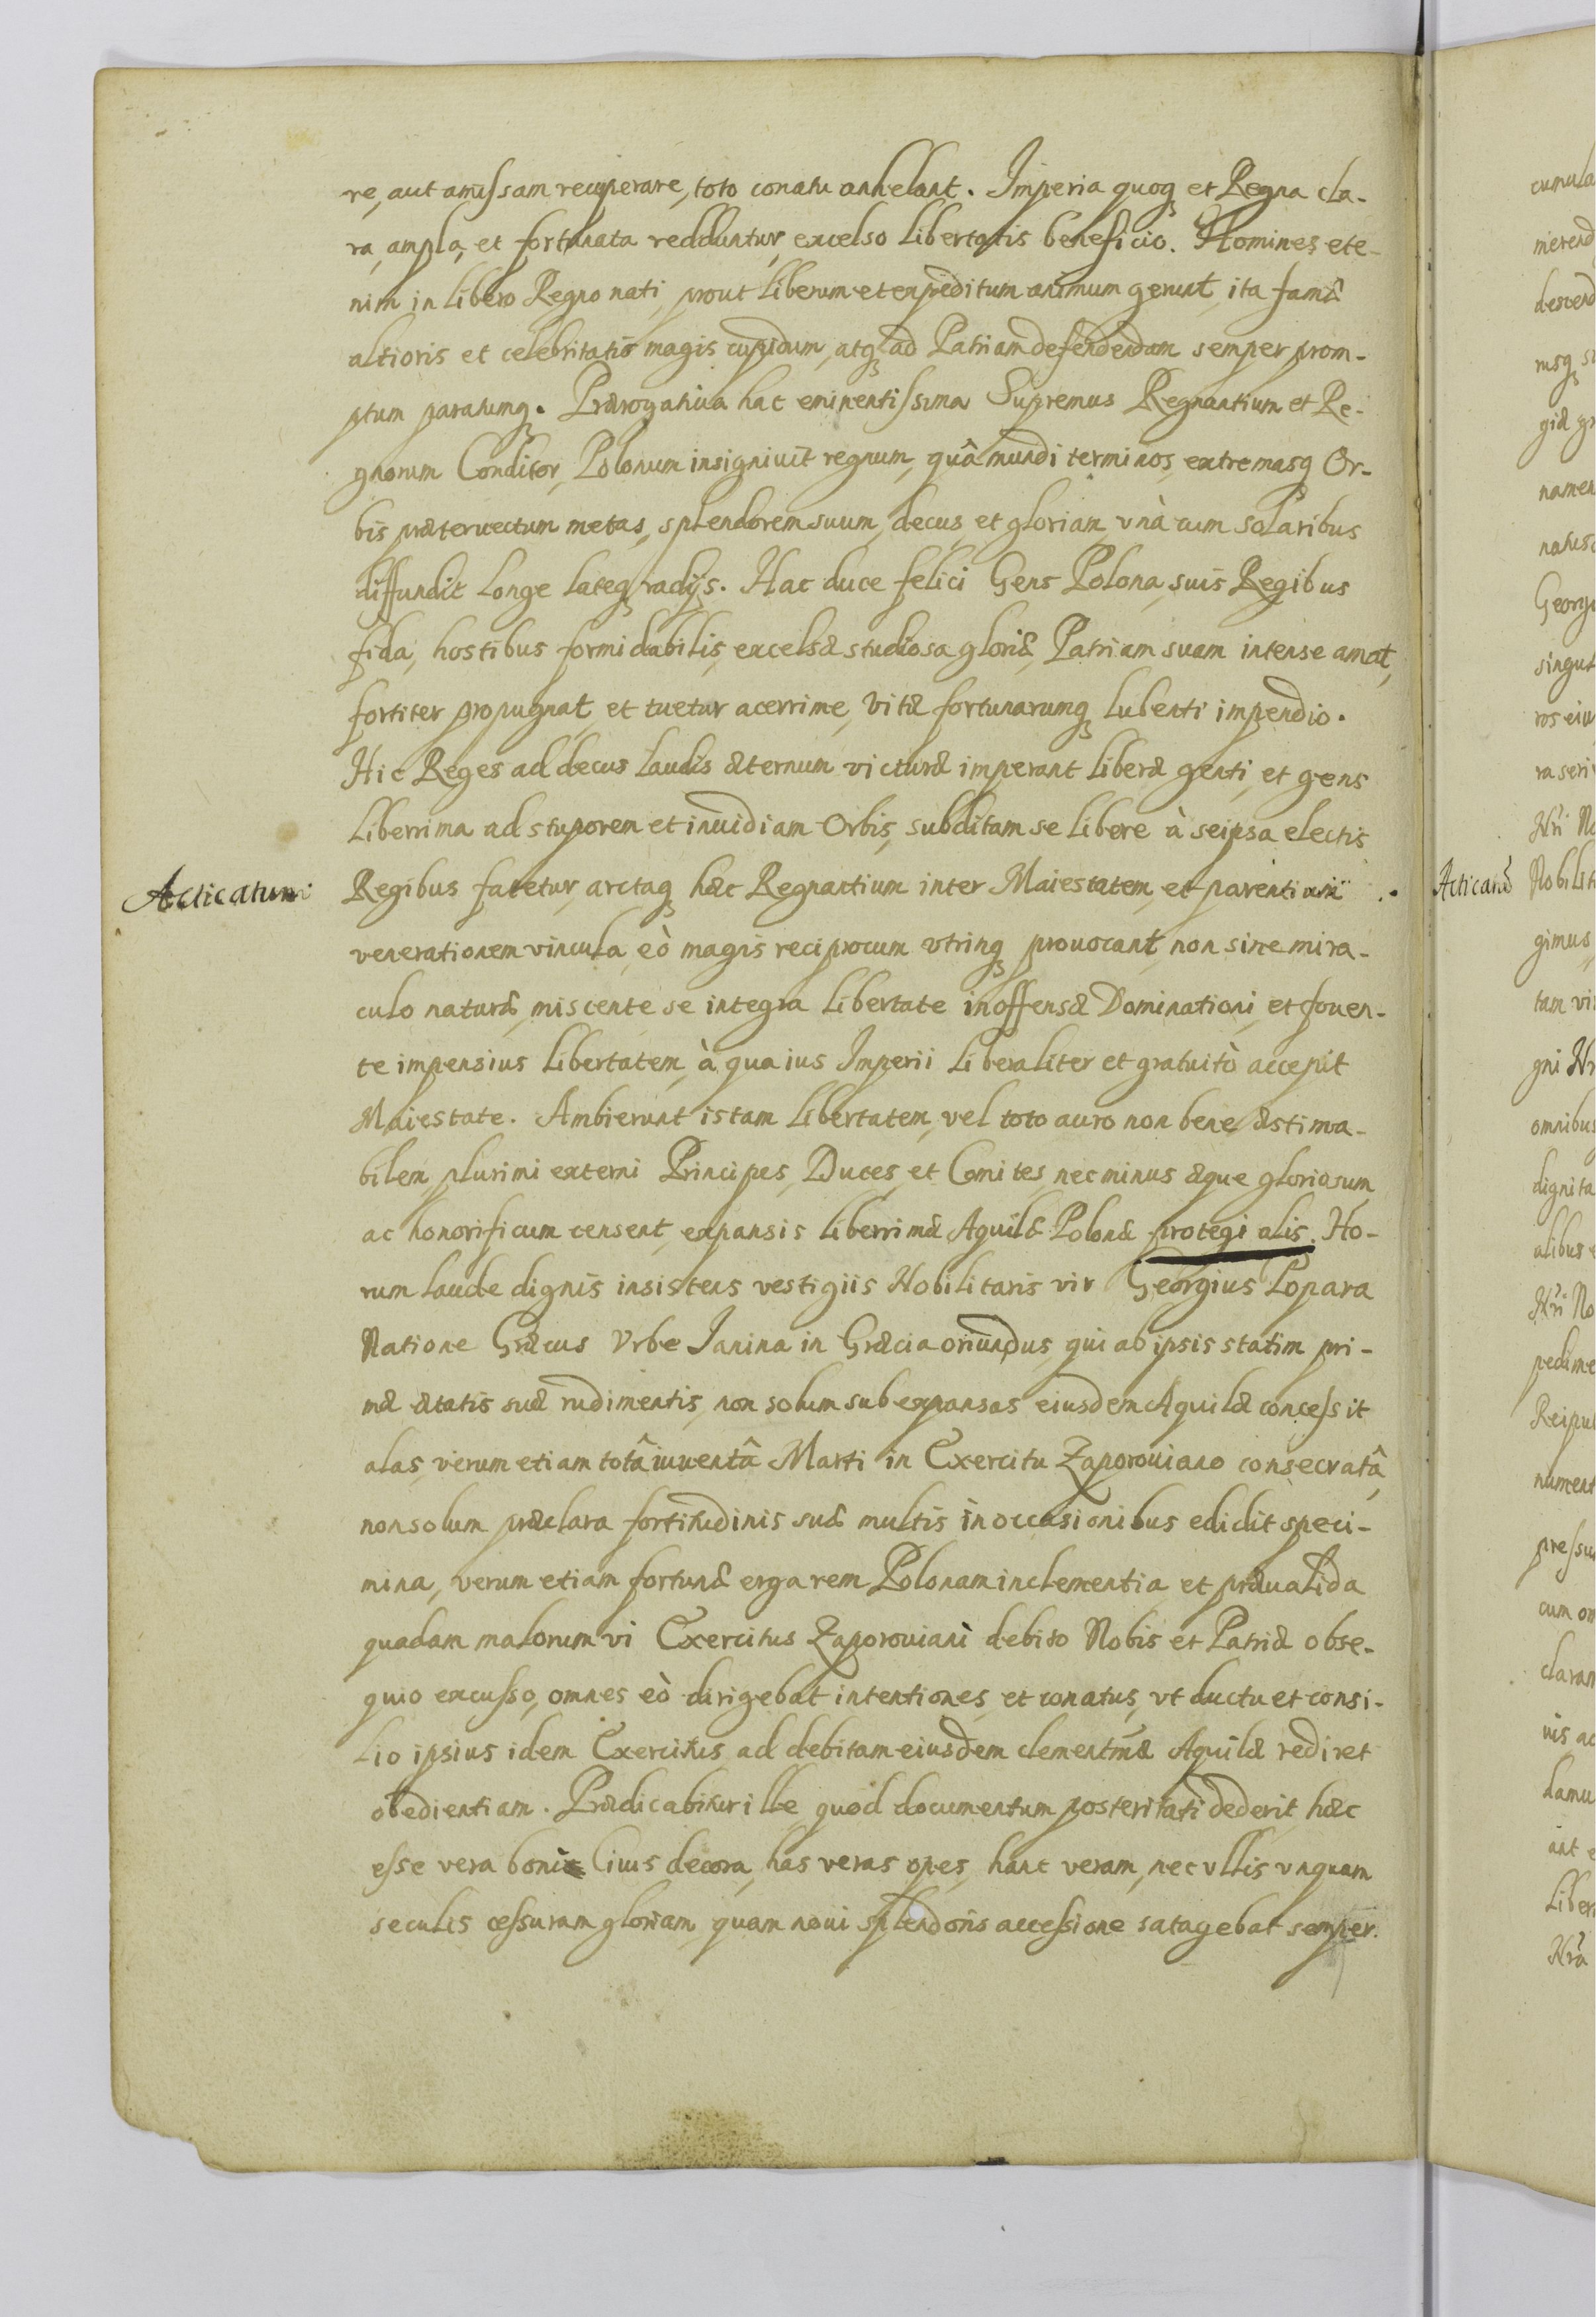 re, aut amissam recuperare, toto conatu anhelant. Imperia quoq₃ et Regna cla-
ra, ampla, et fortunata redduntur, excelso libertatis beneficio. Homines ete-
nim in libero Regno nati, prout liberum et expeditum animum gerunt, ita famæ
altioris et celebritatis magis cupidum, atq₃ ad Patriam defendendam semper prom-
ptum paratumq₃. Prærogatiua hac eminentissima Supremus Regnantium et Re-
gnorum Conditor, Polonum insigniuit regnum, quâ mundi terminos, extremasq₃ Or-
bis præteruectum metas, splendorem suum, decus, et gloriam, vnà cum solaribus
diffundit longe lateq₃ radijs. Hac duce felici Gens Polona, suis Regibus
fida, hostibus formidabilis, excelsæ studiosa gloriæ, Patriam suam intense amat,
fortiter propugnat, et tuetur acerrime, vitæ fortunarumq₃ lubenti impendio.
Hic Reges ad decus laudis æternum victuræ imperant liberæ genti, et gens
liberrima ad stuporem et inuidiam Orbis, subditam se libere à seipsa electis
Acticatum
Regibus fatetur, arctaq₃ hæc Regnantium inter Maiestatem, et parentium
venerationem vincula, eò magis reciprocum vtrinq₃ prouocant, non sine mira-
culo naturæ, miscente se integra libertate inoffensæ Dominationi, et fouen-
te impensius libertatem, à qua ius Imperii liberaliter et gratuitò accepit
Maiestate. Ambierunt istam libertatem, vel toto auro non bene æstima-
bilem, plurimi externi Principes, Duces, et Comites, nec minus æque gloriosum
ac honorificum censent, expansis liberrimæ Aquilæ Polonæ protegi alis. Ho-
rum laude dignis insistens vestigiis Nobilitaris vir Georgius Popara
Natione Græcus Vrbe Ianina in Græcia oriundus, qui ab ipsis statim pri-
mæ ætatis suæ rudimentis, non solum sub expansas eiusdem Aquilæ concessit
alas, verum etiam totâ iuuentâ Marti in Exercitu Zaporouiano consecratâ,
non solum præclara fortitudinis suæ multis in occasionibus edidit speci-
mina, verum etiam fortunæ erga rem Polonam inclementia, et præualida
quadam malorum vi Exercitus Zaporouiani debito Nobis et Patriæ obse-
quio excusso, omnes eò dirigebat intentiones, et conatus, vt ductu et consi-
lio ipsius idem Exercitus ad debitam eiusdem clementmæ Aquilæ rediret
obedientiam. Prædicabitur ille quod documentum posteritati dederit, hæc
esse vera boni Ciuis decora, has veras opes, hanc veram, nec vllis vnquam
seculis cessuram gloriam, quam noui splendoris accessione satagebat semper.
Acticatũ